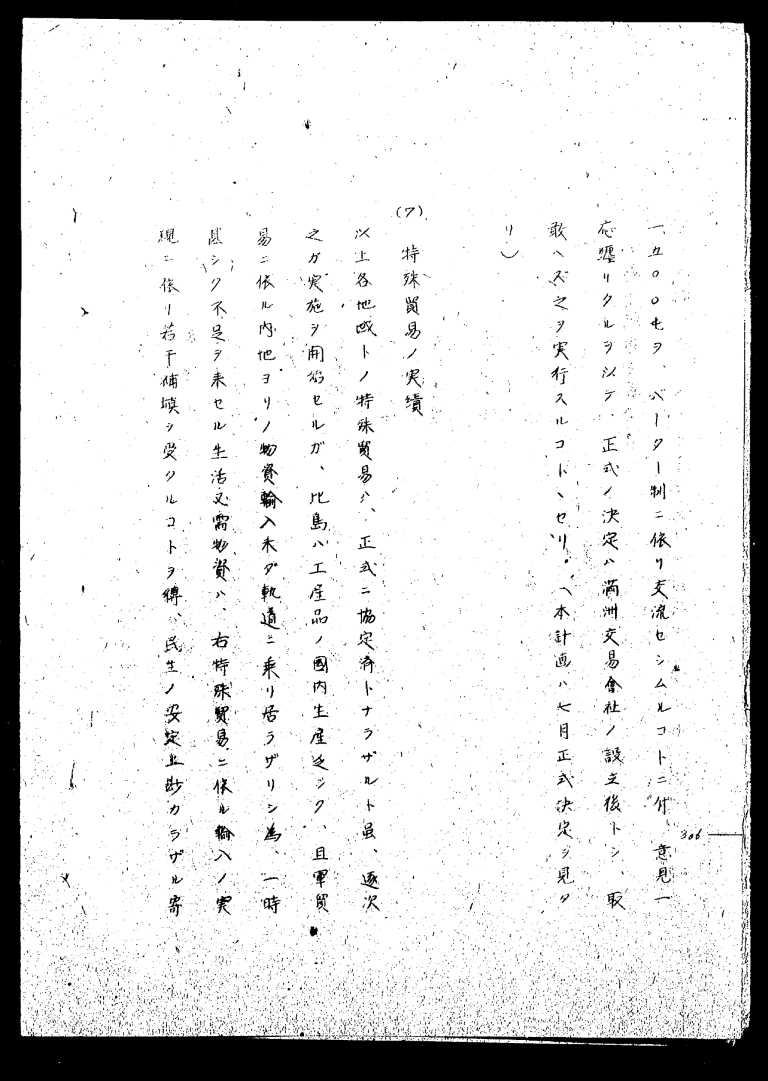 一、五〇〇屯ヲ、バーター制ニ依リ交流セシムルコトニ付、意見一
応纒リタルヲ以テ、正式ノ決定ハ満洲交易會社ノ設立後トシ、取
敢ヘズ之ヲ実行スルコトヽセリ。（本計画ハ七月正式決定ヲ見タ
リ）
(7) 特殊貿易ノ実績
以上各地域トノ特殊貿易ハ、正式ニ協定済トナラザルト虽、逐次
之ガ実施ヲ開始セルガ、比島ハ工産品ノ國内生産乏シク、且軍貿
易ニ依ル内地ヨリノ物資輸入未ダ軌道ニ乗リ居ラザリシ為、一時
甚シク不足ヲ来セル生活必需物資ハ、右特殊貿易ニ依ル輸入ノ実
現ニ依リ若干補填ヲ受クルコトヲ得、民生ノ安定上尠カラザル寄
306